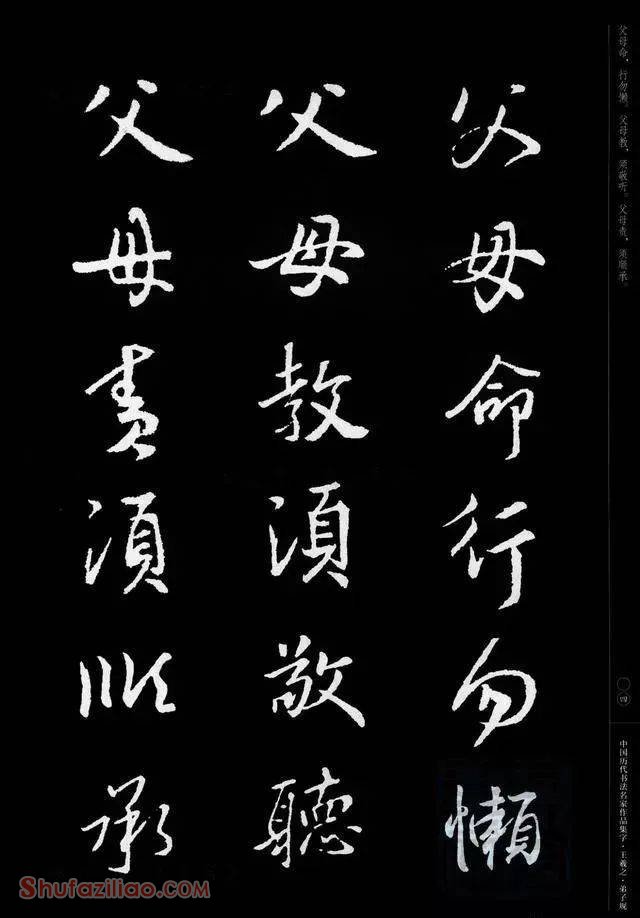 父母命行勿懶
父母教須敬聽
父母責須順承
父母命，行勿懒。父母教，须敬听。父母责，须顺承。
〇四
中国历代书法名家作品集字·王羲之·弟子规
Shufaziliao.com